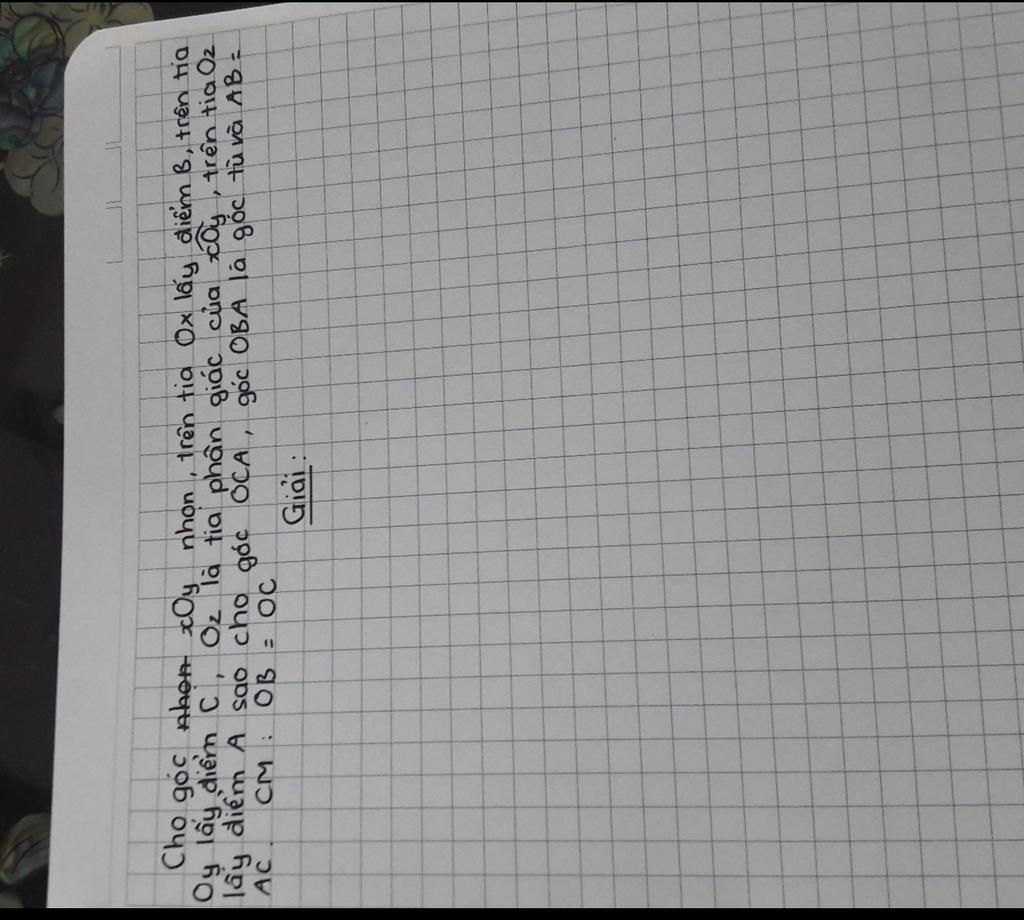 Cho góc nhọn xOy nhọn, trên tia Ox lấy điểm B, trên tia
Oy lấy điểm C, Oz là tia phân giác của xOy, trên tia Oz
lấy điểm A sao cho góc OCA, góc OBA là góc tù và AB =
AC. CM: OB = OC
Giải: